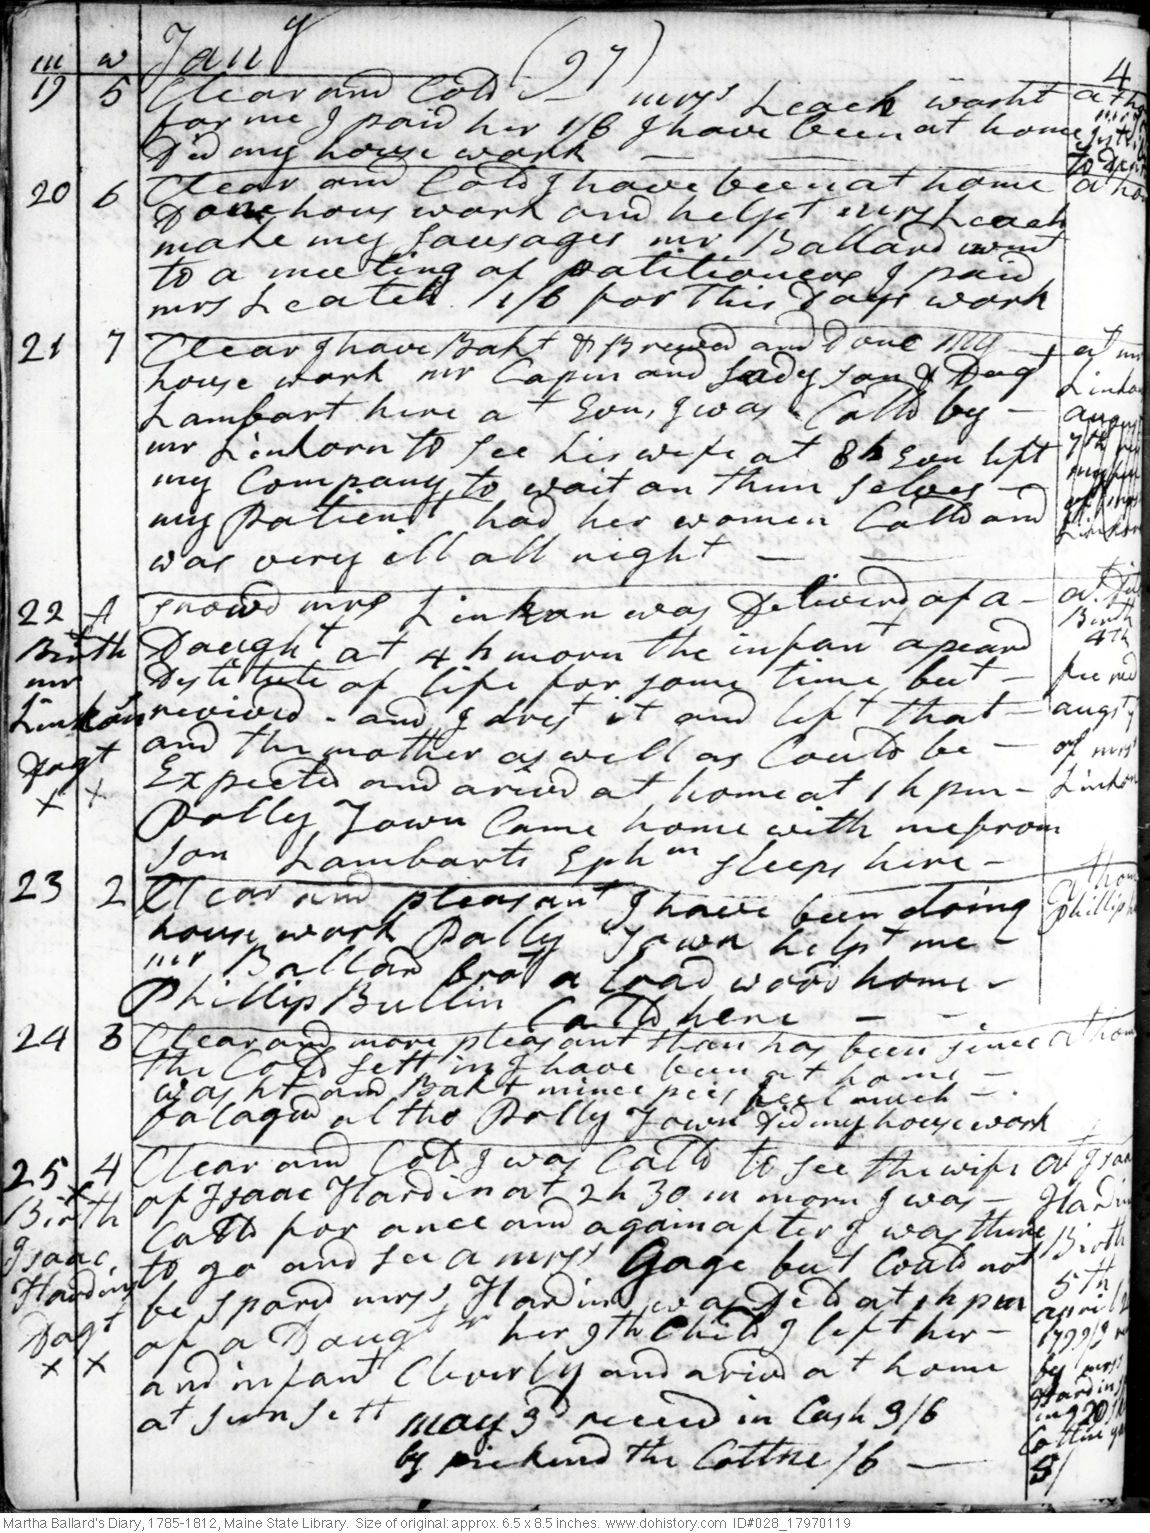 m w Jany (97) 4
19 5 Clear and Cold mrss Leach washt
for me I paid her 1/6 I have been at home
Did my house work
20 6 Clear and Cold I have been at home
Done hous work and helpt mrs Leach
make my sausages mr Ballard went
to a meeting of patitioners I paid
mrs Leatch 1/6 for This Days work
21 7 Clear I have Bakt & Brewed and Done my
house work mr Capin and Lady son & Dag
Lambart here at Evn, I was Calld by
mr Linkorn to see his wife at 8 h Evn left
my Company to wait on them selves
my patient had her women Calld and
was very ill all night
22 snowd mrs Linkon was Deliverd of a
Daught at 4 h morn the infant apeard
Destitute of life for some time but
revived. and I drest it and left that
and the mother as well as Could be
Expected and arivd at home at 1 h pm
Polly Town Came home with me from
son Lambarts Ephm sleeps here
Birth
mr
Linkons
Dagt
x x
23 2 Clear and pleasant I have been doing
house work Polly Town helpt me
mr Ballard brot a load wood home
Phillip Bullin Calld here
24 3 Clear and more pleasant than has been since
the Cold sett in I have been at home
washt and Bakt mince pies feel much
fatagud altho Polly Town Did my house work
25 4 Clear and Cold I was Calld to see the wife
of Isaac Hardin at 2 h 30 m morn I was
Calld for once and again after I was there
to go and see a mrss Gage but Could not
be spard mrss Hardin was Deld at 1 h pm
of a Daugtr her 9th Child I left her
and infant Cleverly and arivd at home
at sun sett
Birth
Isaac
Hardings
Dagt
x x
may 3d receed in Cash 3/6
by the Cottne /6
at mr
Birth
4th
of mrs
at home
Birth
5th
by mrss
Martha Ballard's Diary, 1785-1812, Maine State Library. Size of original: approx. 6.5 x 8.5 inches. www.dohistory.com ID#028_17970119